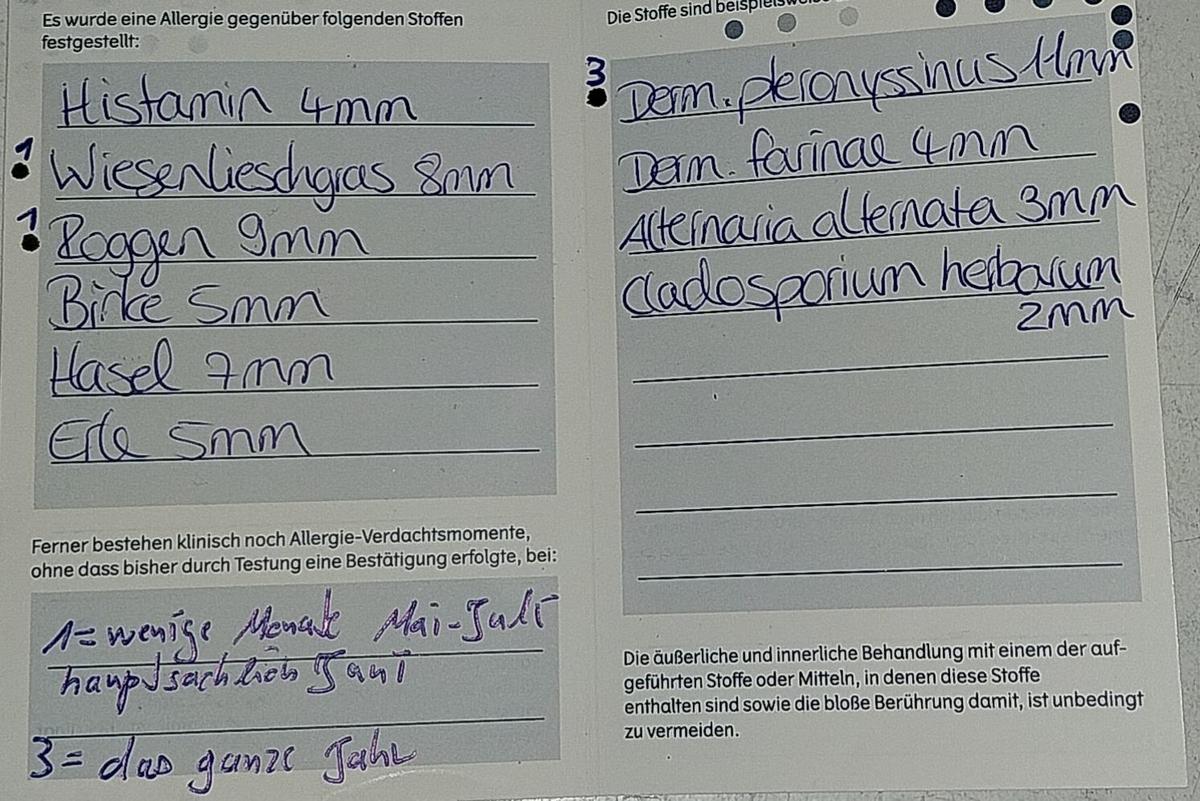 Es wurde eine Allergie gegenüber folgenden Stoffen
festgestellt:
Histamin 4mm
1 Wiesenlieschgras 8mm
1 Roggen 9mm
Birke 5mm
Hasel 7mm
Erle 5mm
Ferner bestehen klinisch noch Allergie-Verdachtsmomente,
ohne dass bisher durch Testung eine Bestätigung erfolgte, bei:
1= wenige Monate Mai-Juli
hauptsächlich Juni
3= das ganze Jahr
Die Stoffe sind beispielsweise
3 Derm. pteronyssinus 11mm
Derm. farinae 4mm
Alternaria alternata 3mm
Cladosporium herbarum
2mm
Die äußerliche und innerliche Behandlung mit einem der auf-
geführten Stoffe oder Mitteln, in denen diese Stoffe
enthalten sind sowie die bloße Berührung damit, ist unbedingt
zu vermeiden.